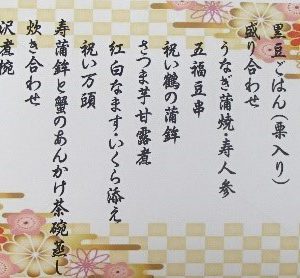 黒豆ごはん(栗入り)
盛り合わせ
うなぎ蒲焼・寿人参
五福豆串
祝い鶴の蒲鉾
さつま芋甘露煮
紅白なます・いくら添え
祝い万頭
寿蒲鉾と蟹のあんかけ茶碗蒸し
炊き合わせ
沢煮椀